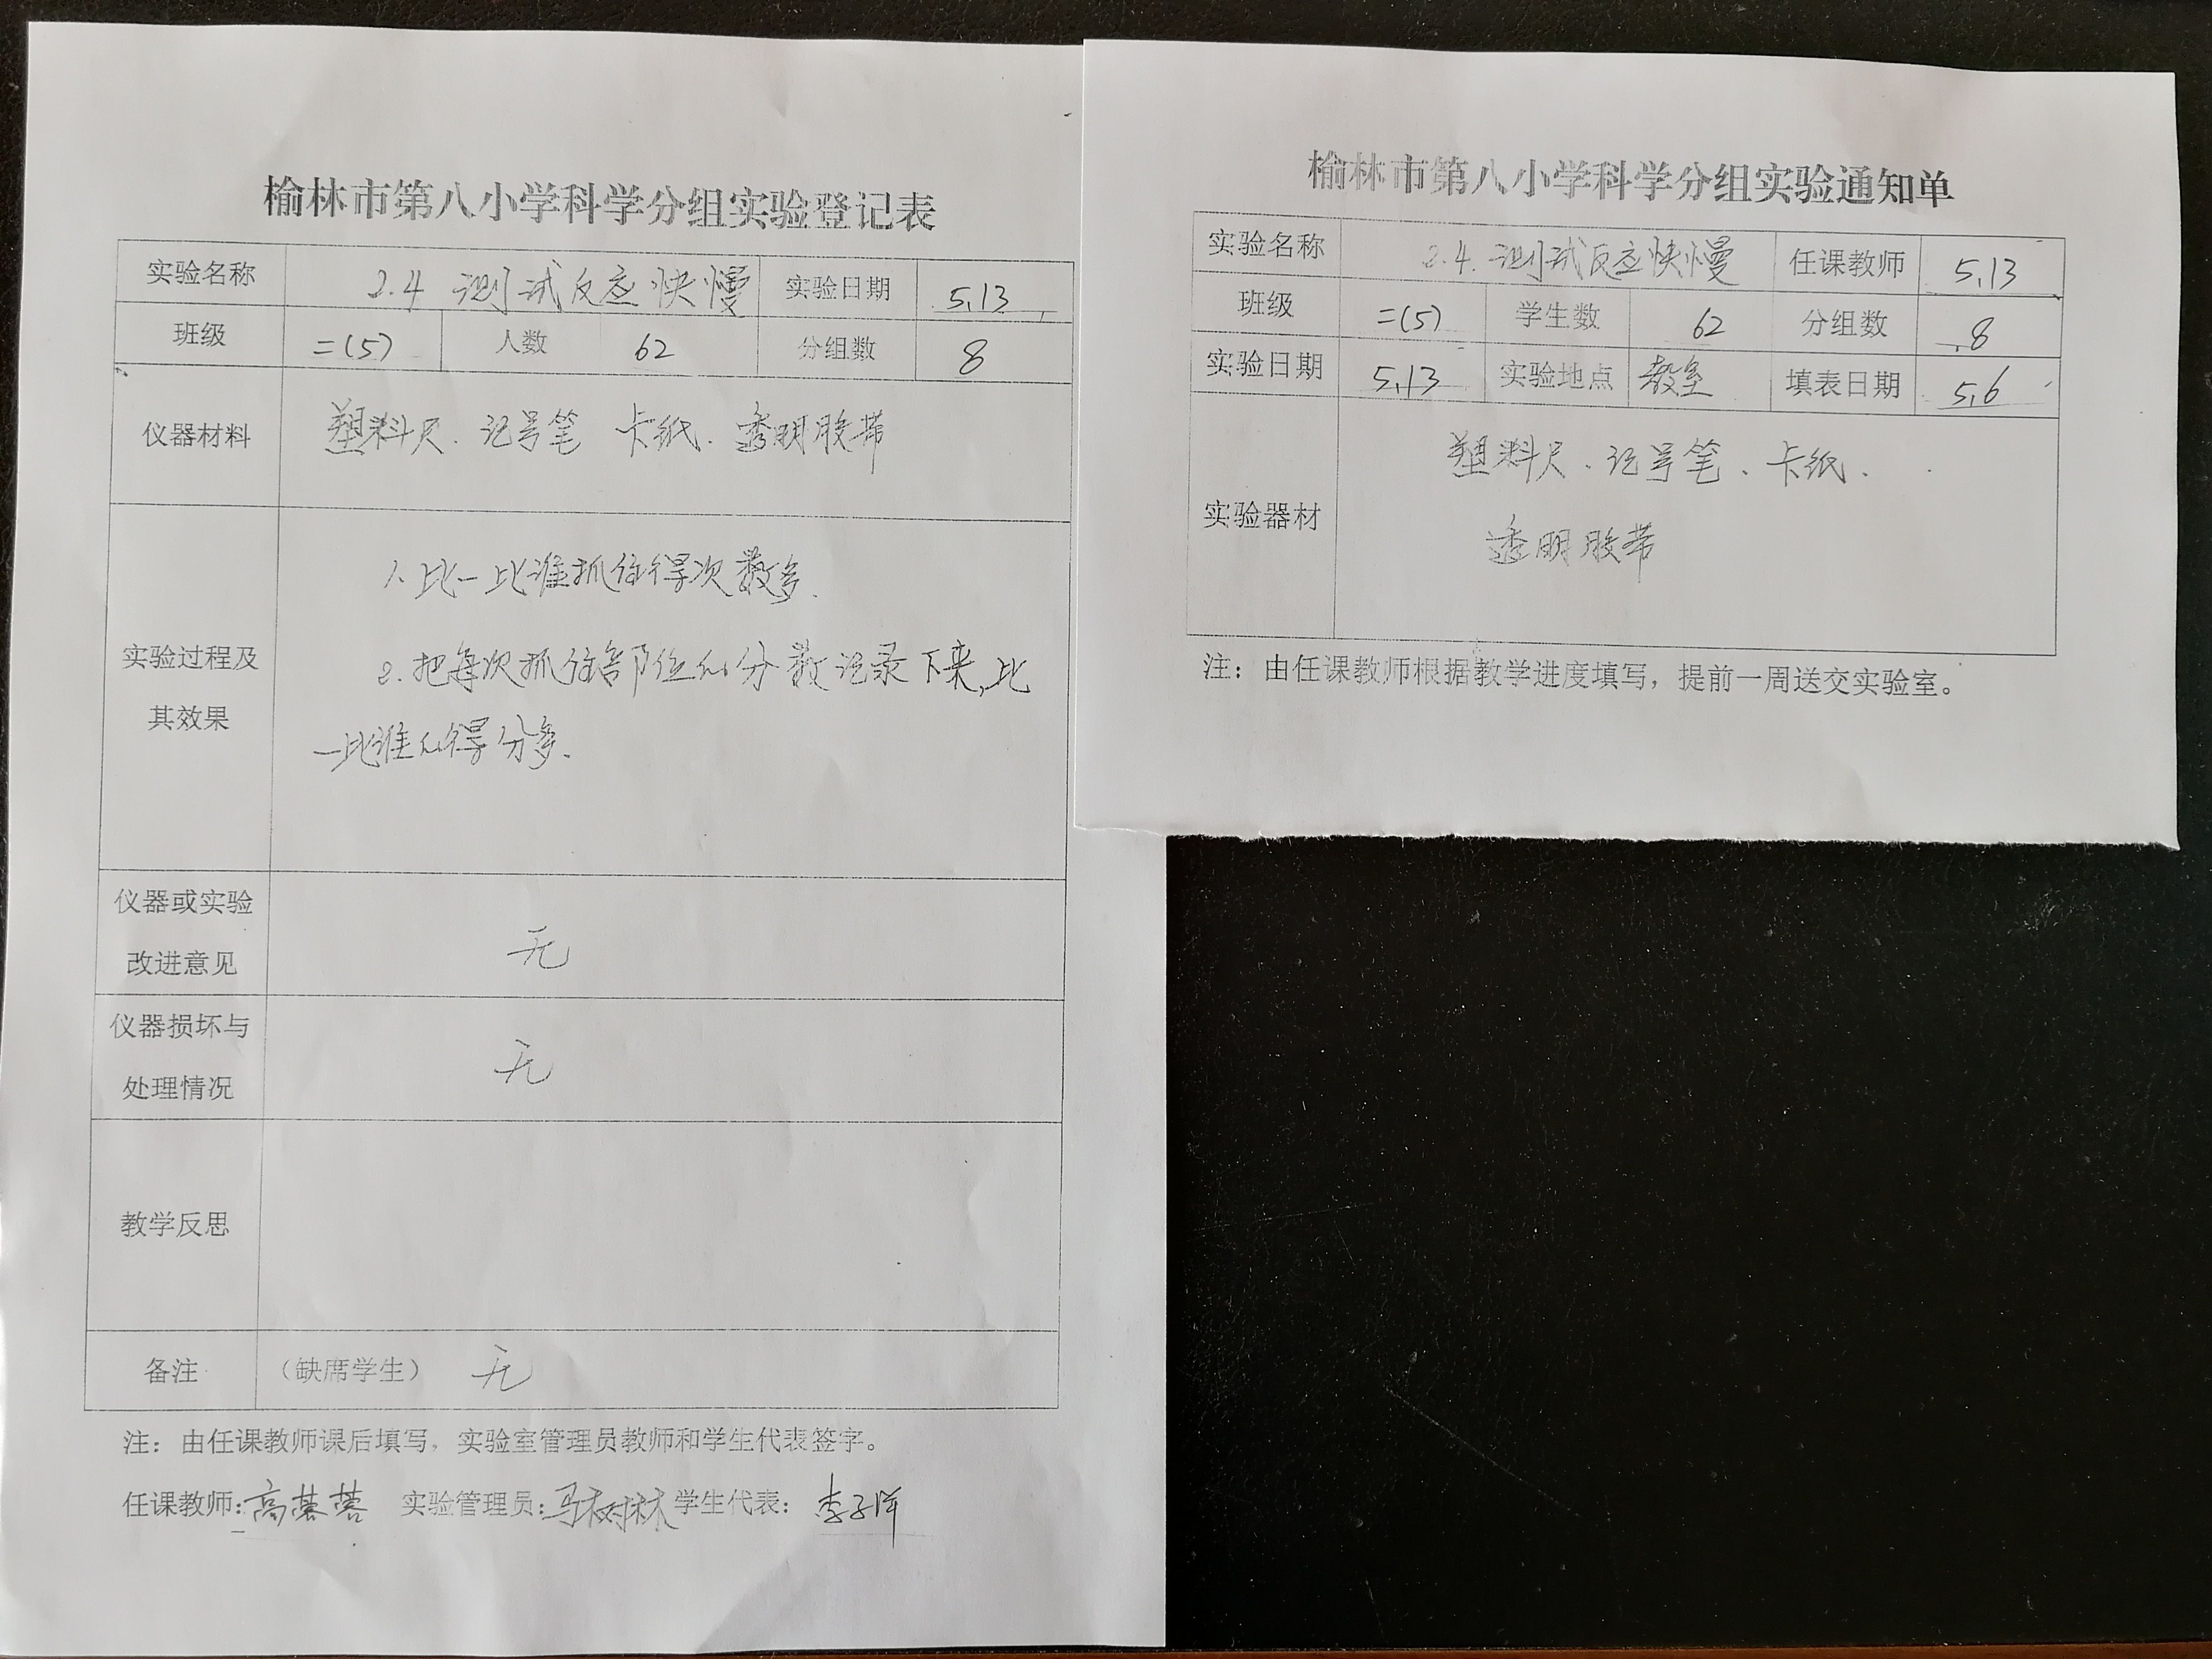 榆林市第八小学科学分组实验登记表
实验名称 2.4 测试反应快慢 实验日期 5.13
班级 二(5) 人数 62 分组数 8
仪器材料 塑料尺、记号笔 卡纸、透明胶带
1、比一比谁抓住得次数多.
2.把每次抓住部位的分数记录下来,比
实验过程及
其效果
一比谁的得分多.
仪器或实验
改进意见
无
仪器损坏与
处理情况
无
教学反思
备注 (缺席学生) 无
注：由任课教师课后填写，实验室管理员教师和学生代表签字。
任课教师: 高 实验管理员: 马树林 学生代表: 李子洋
榆林市第八小学科学分组实验通知单
实验名称 2.4.测试反应快慢 任课教师 5.13
班级 二(5) 学生数 62 分组数 8
实验日期 5.13 实验地点 教室 填表日期 5.6
塑料尺、记号笔、卡纸、
实验器材
透明胶带
注：由任课教师根据教学进度填写，提前一周送交实验室。